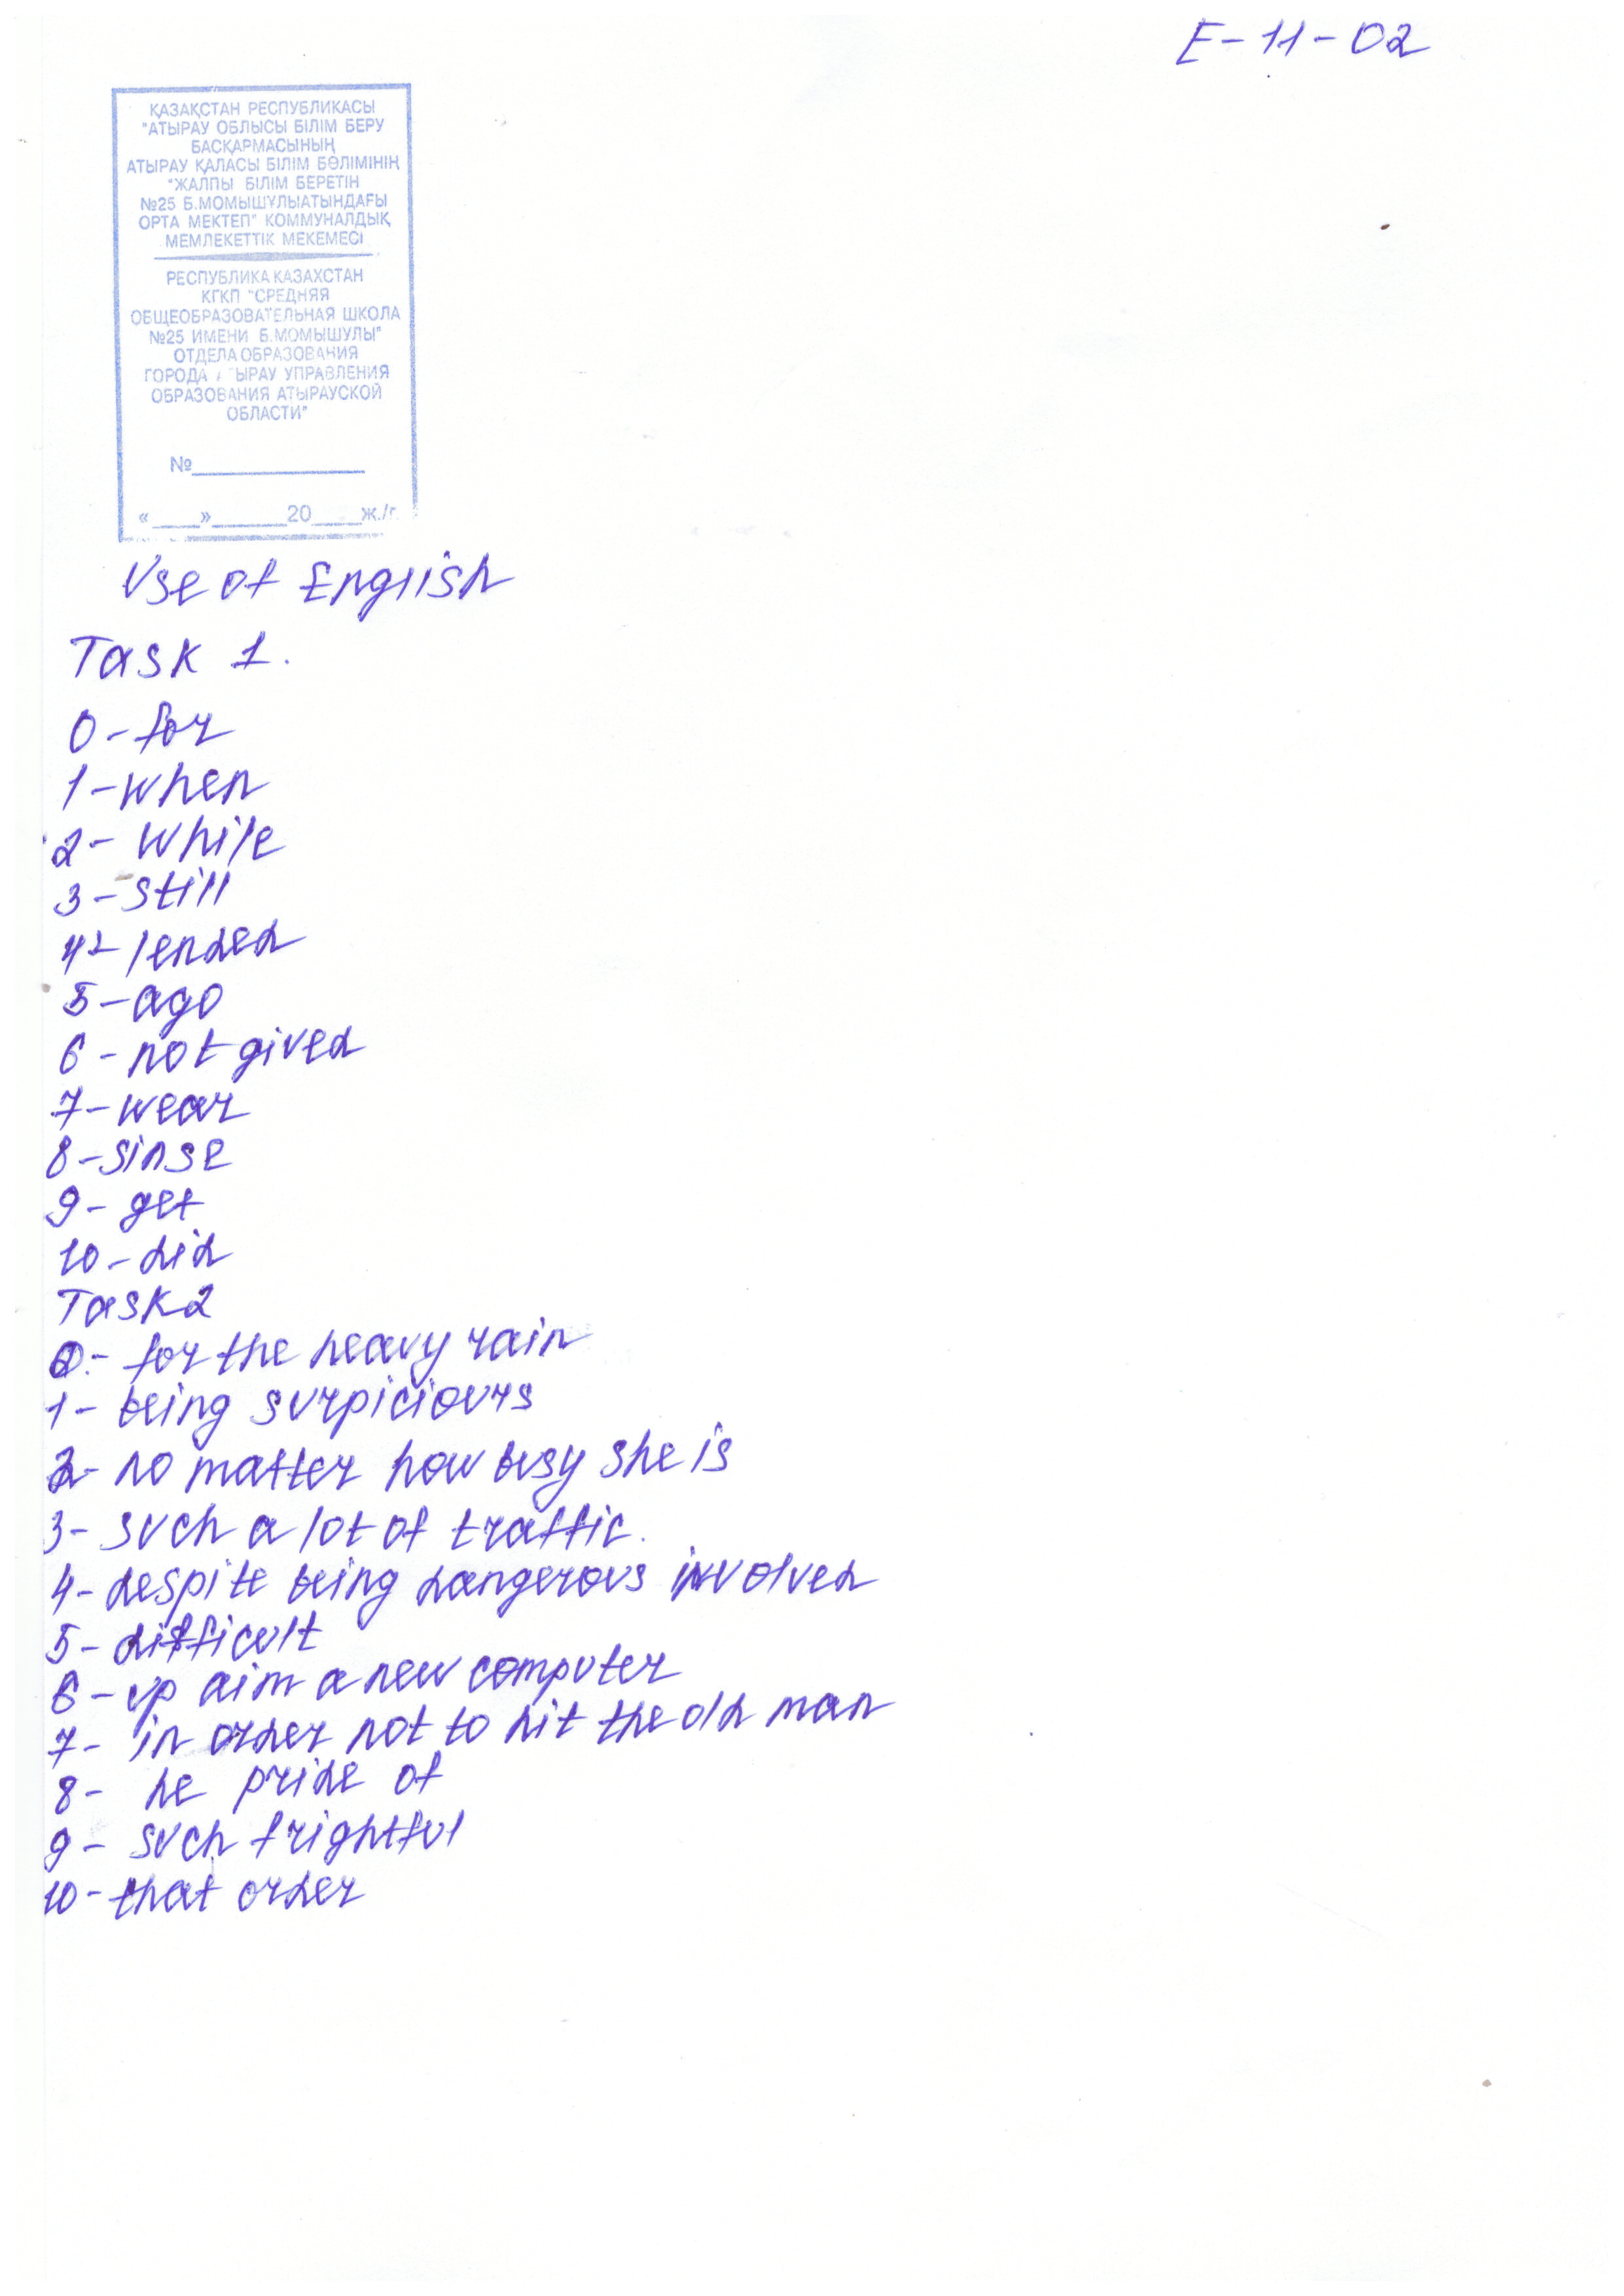 E-11-02
ҚАЗАҚСТАН РЕСПУБЛИКАСЫ
"АТЫРАУ ОБЛЫСЫ БІЛІМ БЕРУ
БАСҚАРМАСЫНЫҢ
АТЫРАУ ҚАЛАСЫ БІЛІМ БӨЛІМІНІҢ
"ЖАЛПЫ БІЛІМ БЕРЕТІН
№25 Б.МОМЫШҰЛЫАТЫНДАҒЫ
ОРТА МЕКТЕП" КОММУНАЛДЫҚ
МЕМЛЕКЕТТІК МЕКЕМЕСІ
РЕСПУБЛИКА КАЗАХСТАН
КГКП "СРЕДНЯЯ
ОБЩЕОБРАЗОВАТЕЛЬНАЯ ШКОЛА
№25 ИМЕНИ Б.МОМЫШУЛЫ"
ОТДЕЛА ОБРАЗОВАНИЯ
ГОРОДА АТЫРАУ УПРАВЛЕНИЯ
ОБРАЗОВАНИЯ АТЫРАУСКОЙ
ОБЛАСТИ"
№
« » 20 ж./г.
Use of English
Task 1.
0 - for
1 - when
2 - while
3 - still
4 - lended
5 - ago
6 - not gived
7 - wear
8 - sinse
9 - get
10 - did
Task 2
0. - for the heavy rain
1 - being surpiciours
2 - no matter how busy she is
3 - such a lot of traffic.
4 - despite being dangerous involved
5 - difficult
6 - up aim a new computer
7 - in order not to hit the old man
8 - he pride of
9 - such frightful
10 - that order